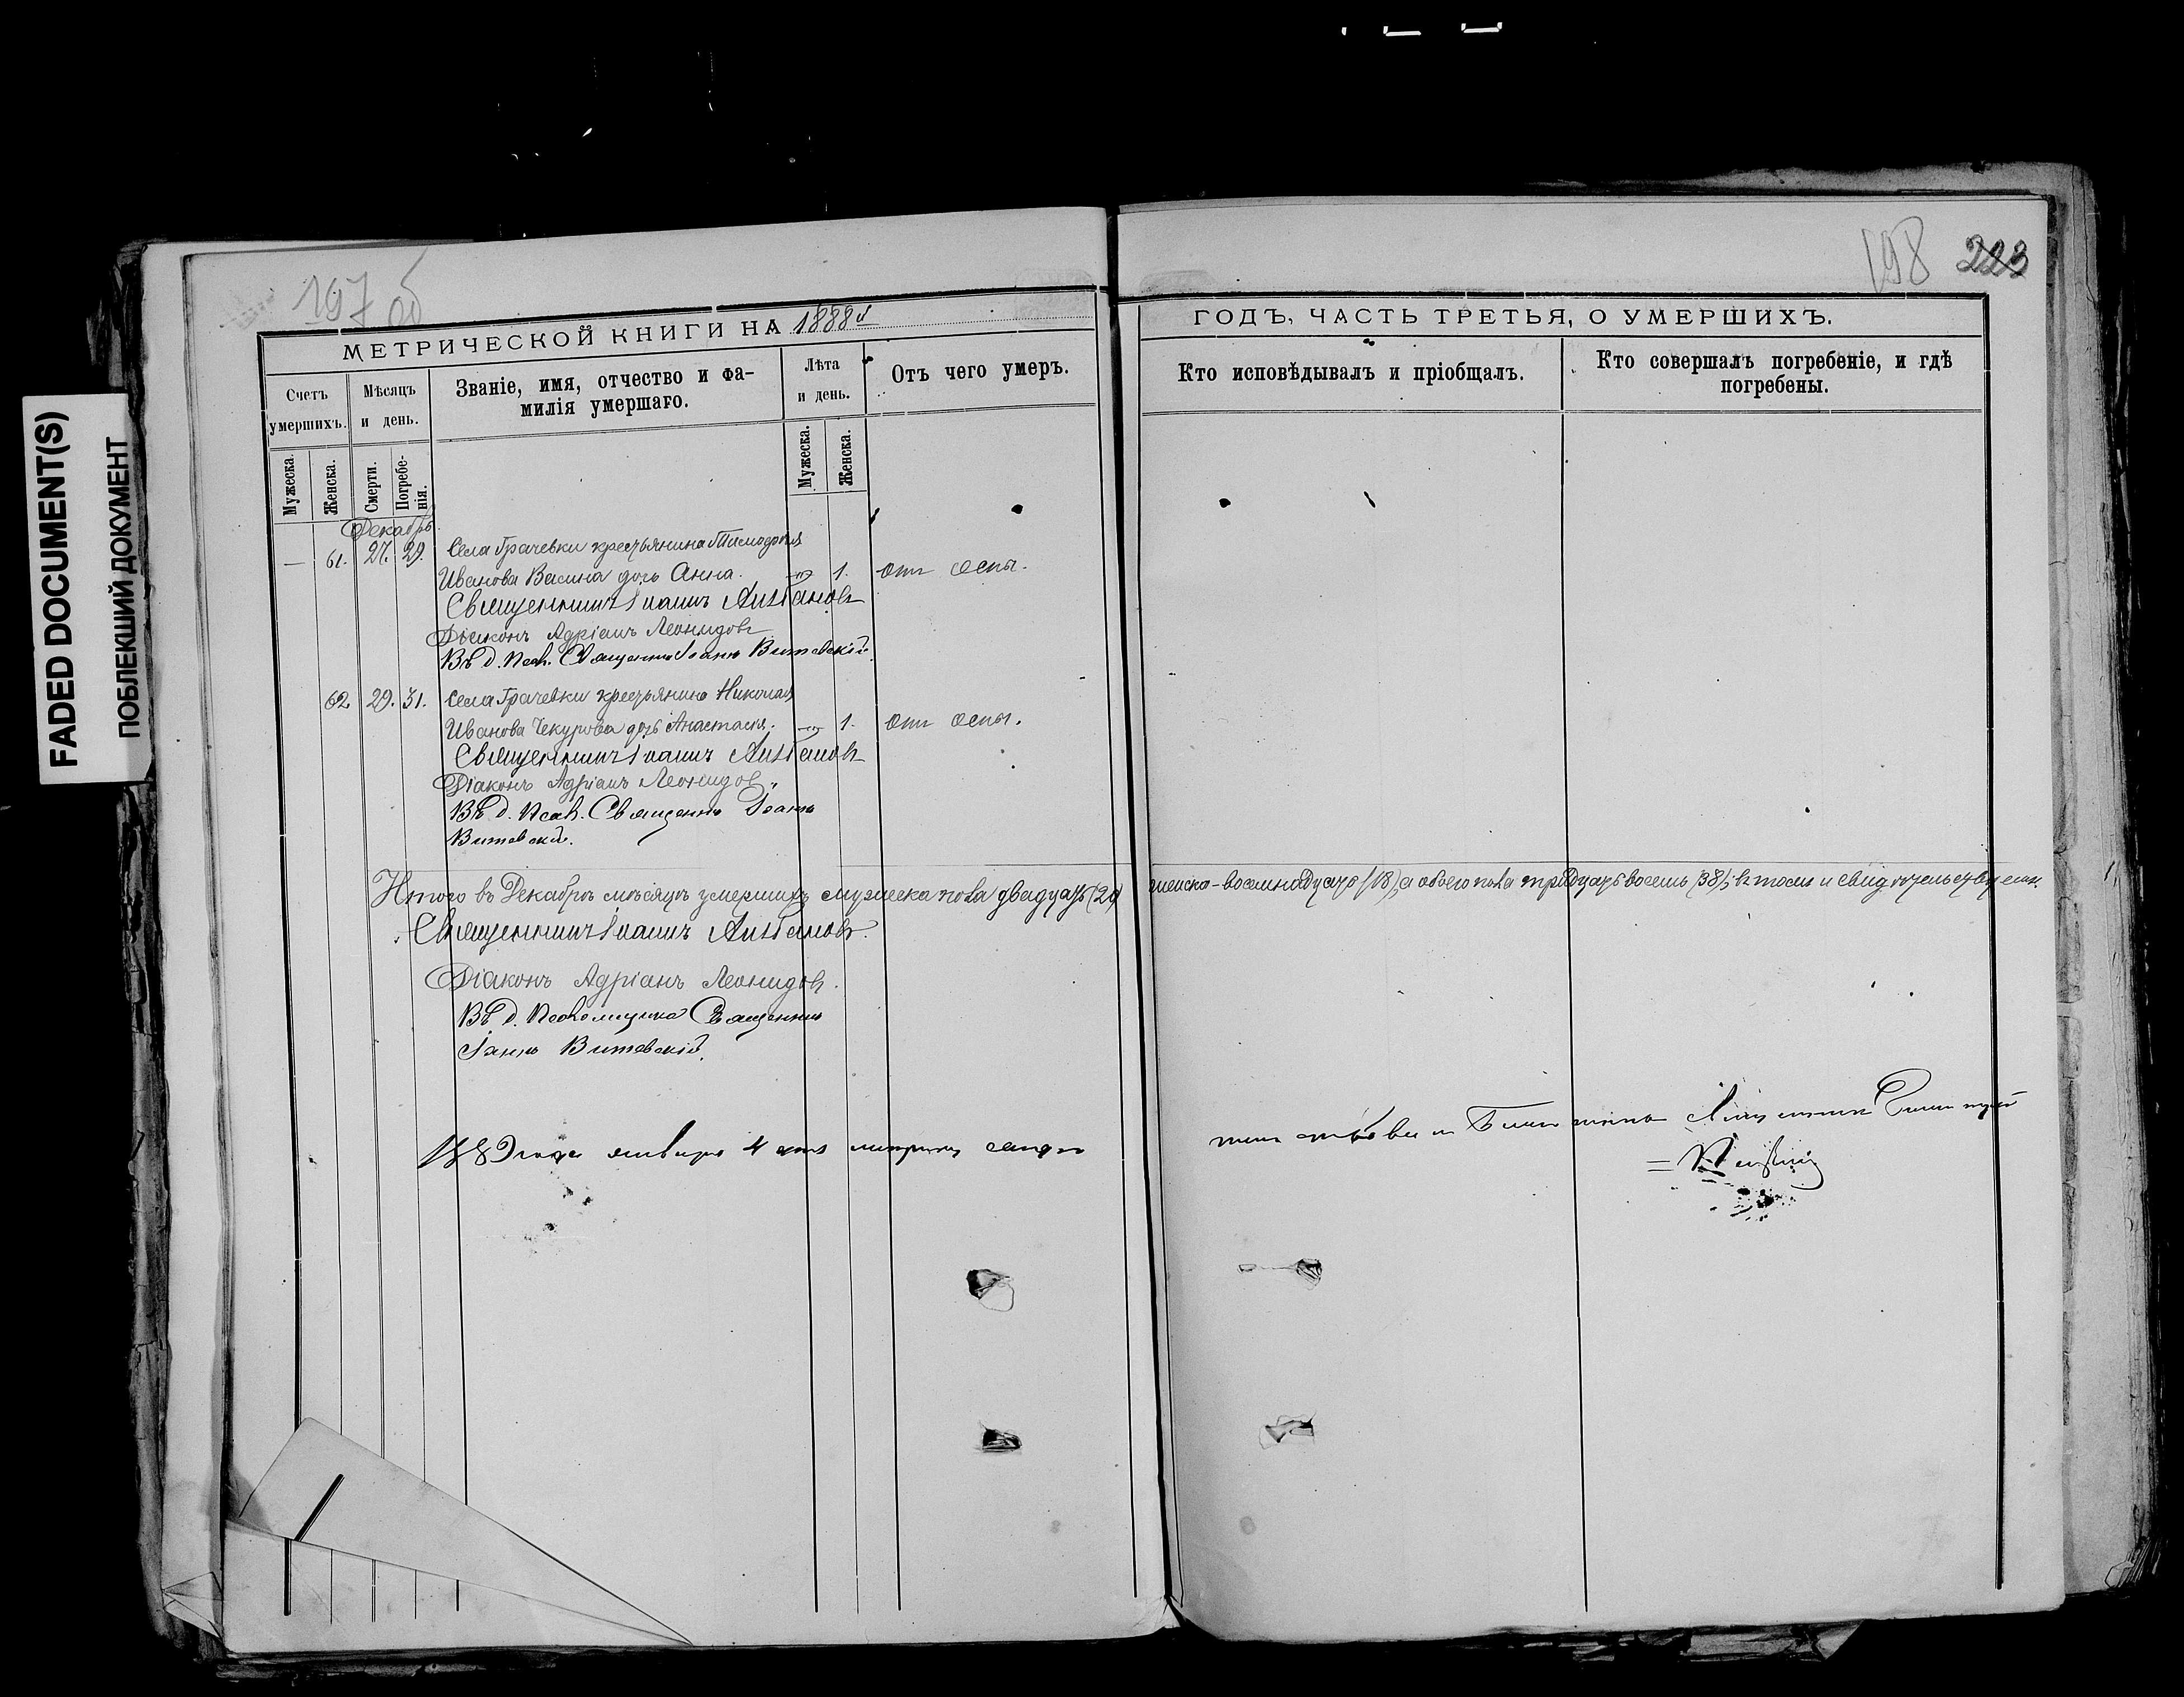 FADED DOCUMENT(S)
ПОБЛЕКШИЙ ДОКУМЕНТ
197 об
198 223
МЕТРИЧЕСКОЙ КНИГИ НА 1888й
ГОДЪ, ЧАСТЬ ТРЕТЬЯ, О УМЕРШИХЪ.
Счетъ умершихъ.
Мѣсяцъ и день.
Званіе, имя, отчество и фа-
милія умершаго.
Лѣта и день.
Отъ чего умеръ.
Кто исповѣдывалъ и пріобщалъ.
Кто совершалъ погребеніе, и гдѣ
погребены.
Мужеска.
Женска.
Смерти.
Погребе-
нія.
Мужеска.
Женска.
Декабрь
— 61. 27. 29. Села Грачевки крестьянина Тимофея
Иванова Васина дочь Анна. 1. отъ оспы.
Священникъ Іоаннъ
Діаконъ Адріанъ Леонидовъ
Въ д. Псал. Священникъ Іоаннъ Витевскій.
62. 29. 31. Села Грачевки крестьянина Николая
Иванова Чекурова дочь Анастасія. 1. отъ оспы.
Священникъ Іоаннъ
Діаконъ Адріанъ Леонидовъ
Въ д. Псал. Священникъ Іоаннъ
Витевскій.
Итого въ Декабрѣ мѣсяцѣ умершихъ мужеска пола двадцать (20) женска - восемнадцать (18), а обоего пола тридцать восемь (38); въ томъ и свидѣтельствуемъ.
Священникъ Іоаннъ
Діаконъ Адріанъ Леонидовъ.
Въ д. Псаломщика Священникъ
Іоаннъ Витевскій.
1889 года января 4 дня